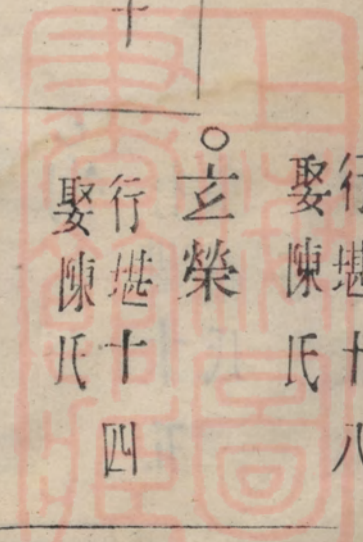 十
行堪十八
娶陳氏
○玄榮
行堪十四
娶陳氏